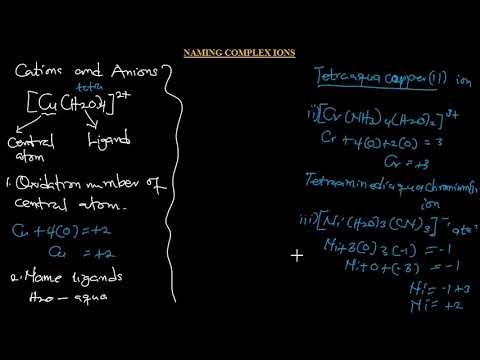 NAMING COMPLEX IONS
Cations and Anions
tetra
[Cu(H2O)4]2+
Central
atom
Ligand
1. Oxidation number of
central atom.
Cu + 4(0) = +2
Cu = +2
2. Name ligands
H2O - aqua
Tetraaqua copper(II) ion
ii) [Cr(NH3)4(H2O)2]3+
Cr + 4(0) + 2(0) = 3
Cr = +3
Tetraaminediaquachromium
ion
iii) [Ni(H2O)3(CN)3]-, ate
Ni + 3(0) 3(-1) = -1
Ni + 0 + (-3) = -1
Ni = -1+3
Ni = +2